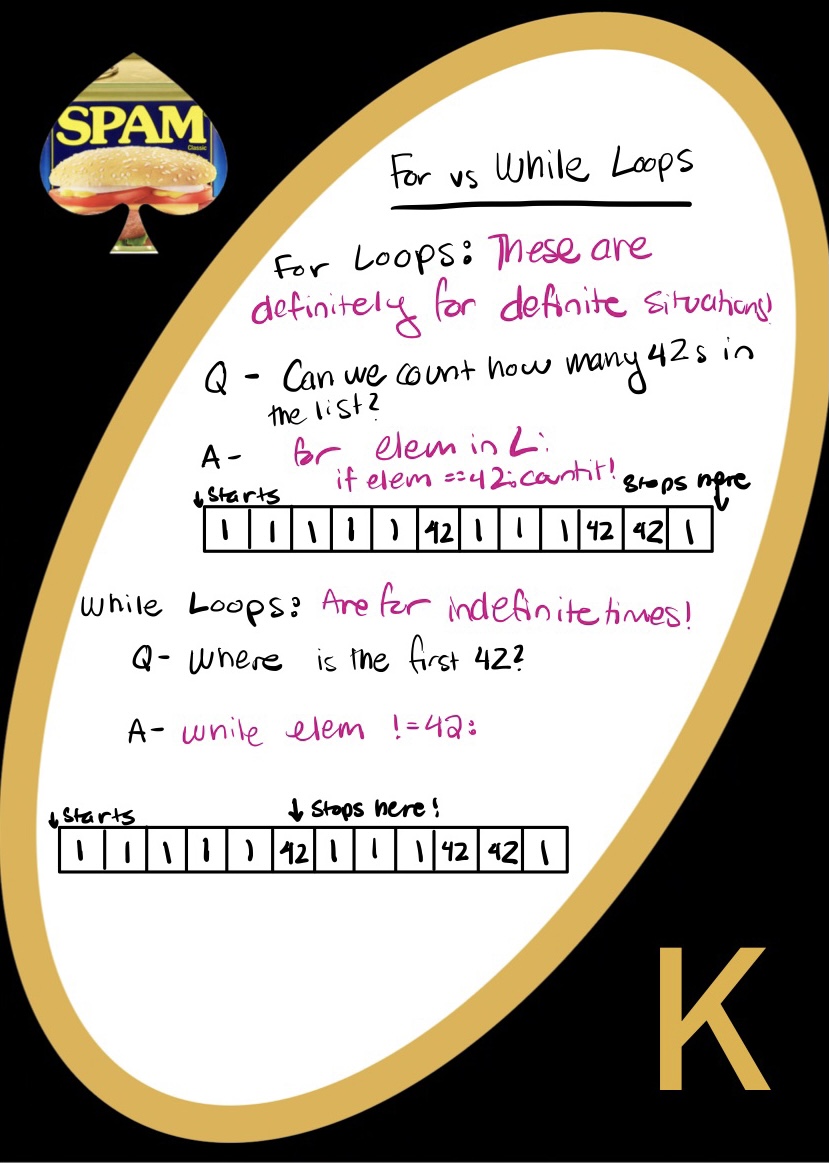 SPAM
Classic
For vs While Loops
For Loops: These are
definitely for definite situations!
Q - Can we count how many 42s in
the list?
A- for elem in L:
if elem == 42: count it!
↓ Starts
Stops here ↓
1 1 1 1 1 42 1 1 1 42 42 1
While Loops: Are for indefinite times!
Q- Where is the first 42?
A- while elem != 42:
↓ Starts ↓ Stops here!
1 1 1 1 1 42 1 1 1 42 42 1
K